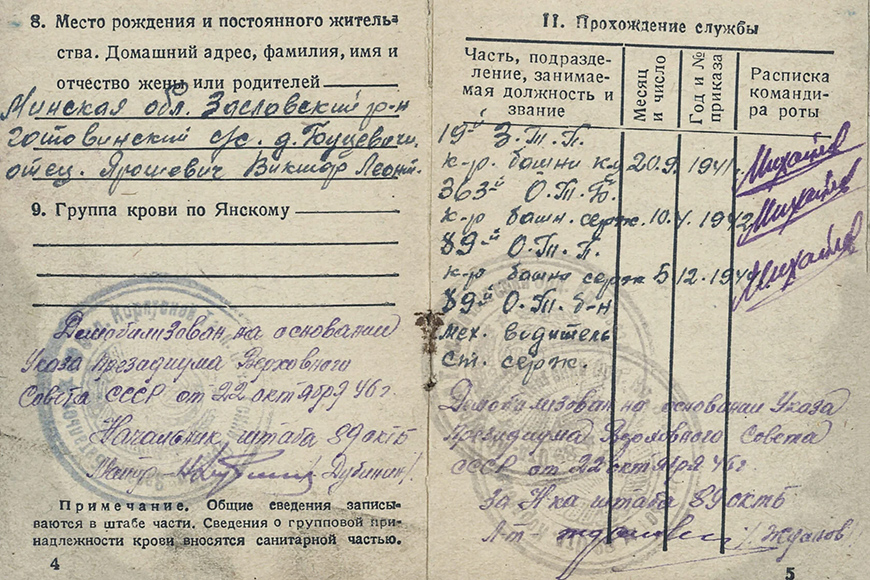 8. Место рождения и постоянного житель-
ства. Домашний адрес, фамилия, имя и
отчество жены или родителей
Минская обл. Заславский р-н
готовинский с/с. д. Буцевичи.
отец. Ярошевич Виктор Леонт.
9. Группа крови по Янскому
Демобилизован на основании
Указа Президиума Верховного
Совета СССР от 22 октября 46 г.
Начальник штаба 89 октб
Майор Дубинин/
Примечание. Общие сведения записы-
ваются в штабе части. Сведения о групповой при-
надлежности крови вносятся санитарной частью.
4
11. Прохождение службы
Часть, подразде-
ление, занимае-
мая должность и
звание
Месяц
и число
Год и №
приказа
Расписка
команди-
ра роты
19й З.Т.П.
к-р. башни 20.9. 1941 Михайлов
363й О.Т.Б.
к-р башн. серж. 10. 1942 Михайлов
89й О.Т.П.
к-р башни серж 5 12. 1944 Михайлов
89й О.Т. б-н
мех. водитель
ст. серж.
Демобилизован на основании Указа
Президиума Верховного Совета
СССР от 22 октября 46 г.
За Н-ка штаба 89 октб
Л-т /Жданов/
5